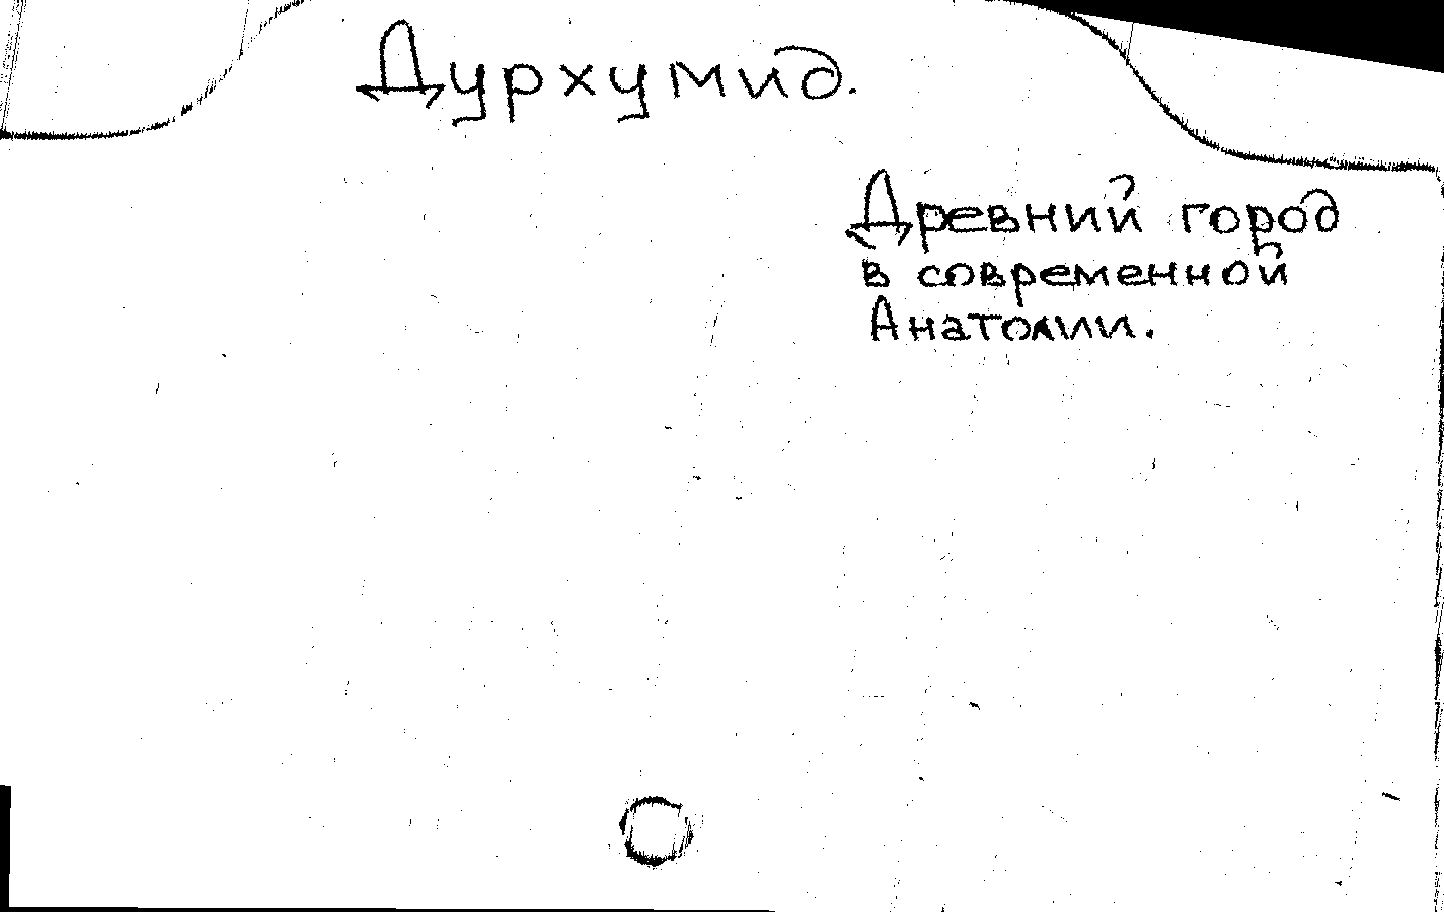 Дурхумид.
Древний город
в современной
Анатолии.